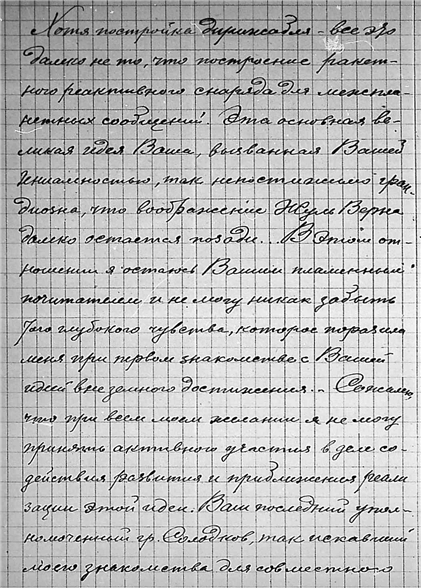 Хотя постройка дирижабля - все это
далеко не то, что построение ракет-
ного реактивного снаряда для межпла-
нетных сообщений. Эта основная ве-
ликая идея Ваша, вызванная Вашей
гениальностью, так непостижимо гран-
диозна, что воображение Жуль Верна
далеко остается позади... В этом от-
ношении я остаюсь Вашим пламенным
почитателем и не могу никак забыть
того глубокого чувства, которое поразило
меня при первом знакомстве с Вашей
идеей внеземного достижения... Сожалею,
что при всем моем желании я не могу
принять активного участия в деле со-
действия развития и приближения реали
зации этой идеи. Ваш последний упол-
номоченный гр. Солодков, так искавший
моего знакомства для совместного